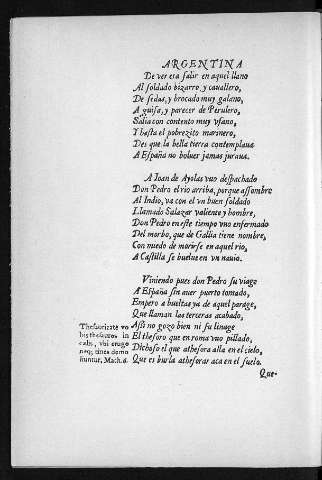 ARGENTINA
De ver era salir en aquel llano
Al soldado bizarro, y cauallero,
De sedas, y brocado muy galano,
A guisa, y parecer de Perulero,
Salia con contento muy vfano,
Y hasta el pobrezito marinero,
Des que la bella tierra contemplaua
A España no boluer jamas juraua.
A Ioan de Ayolas vuo despachado
Don Pedro el rio arriba, porque assombre
Al Indio, va con el vn buen soldado
Llamado Salazar valiente y hombre,
Don Pedro en este tiempo vno enfermado
Del morbo, que de Gallia tiene nombre,
Con miedo de morirse en aquel rio,
A Castilla se buelue en vn nauio.
Viniendo pues don Pedro su viage
A España sin auer puerto tomado,
Empero a bueltas ya de aquel parage,
Que llaman las terceras acabado,
Assi no gozo bien ni su linage
El thesoro que en roma vuo pillado,
Dichoso el que athesora alla en el cielo,
Que es burla athesorar aca en el suelo.
Thesaurizate vo
bis thesauros in
cælis, vbi erugo
neq; tinea demo
liuntur, Math. 6.
Que-